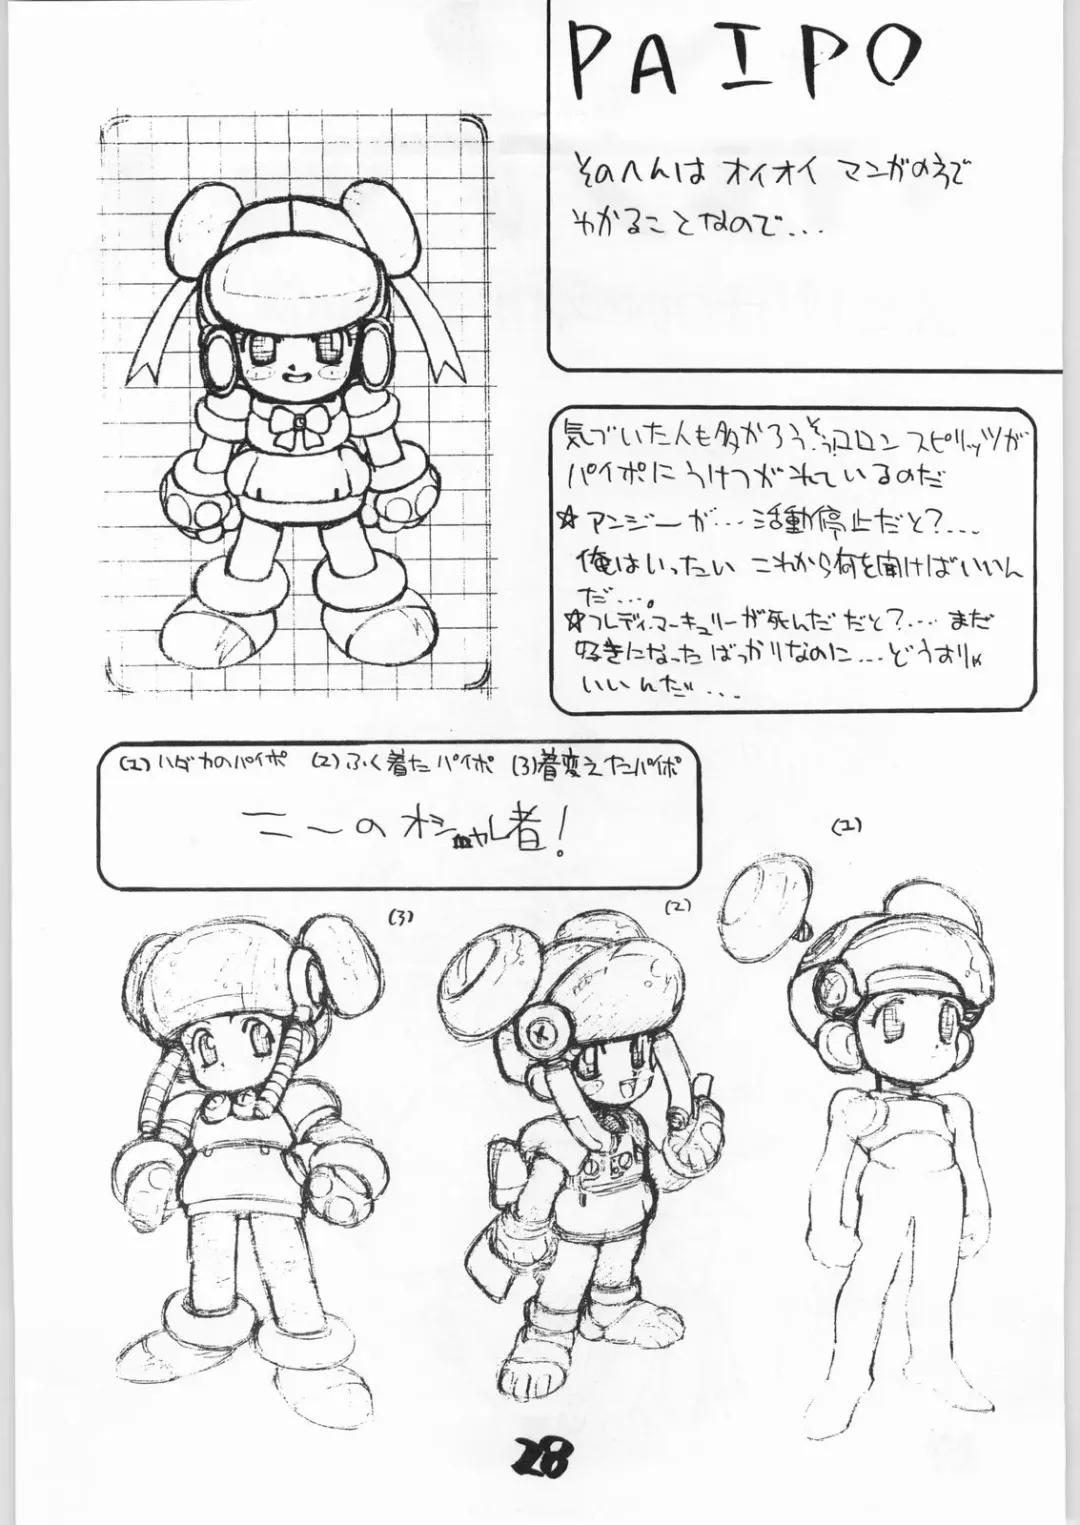 PAIPO
そのへんは オイオイ マンガの方で
わかることなので...
気づいた人も多かろう、そう!コロン スピリッツが
パイポに うけつがれているのだ
☆アンジーが... 活動停止だと?....
俺はいったい これから何を聞けばいいん
だ....。
☆フレディ・マーキュリーが死んだ だと?.... まだ
好きになった ばっかりなのに...どうすりゃ
いいんだ...
(1)ハダカのパイポ (2)ふく着たパイポ (3)着変えたパイポ
ニ〜のオシャレ者!
(1)
(2)
(3)
28